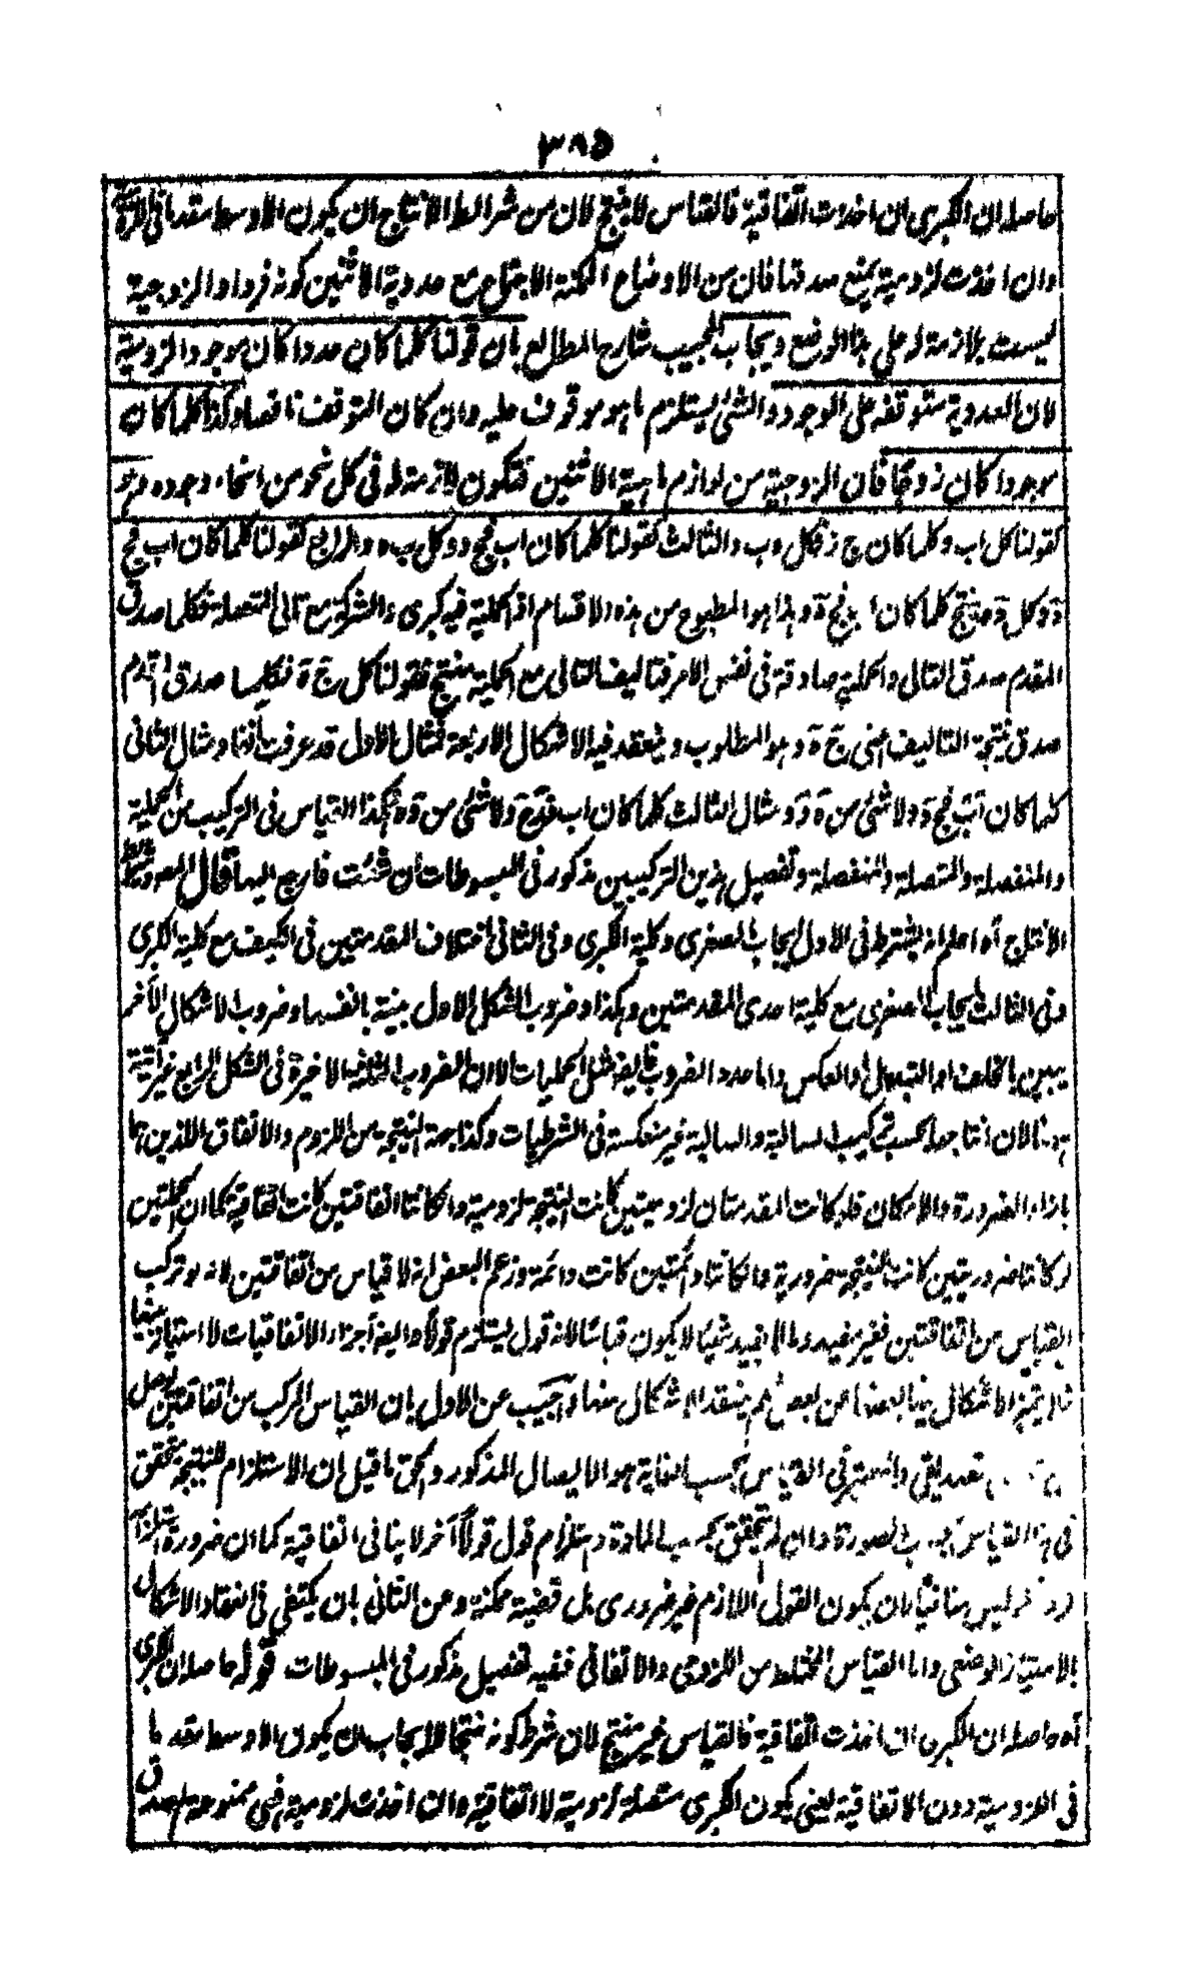 ٣٨٥
حاصله ان الكبرى ان اخذت اتفاقية فالقياس لا ينتج لان من شرائط الانتاج ان يكون الاوسط مقدما فى اللزومية
وان اخذت لزومية يمنع صدقها فان من الاوضاع الممكنة الاجتماع مع عددية الاثنين كونه فردا والزوجية
ليست بلازمة له على هذا الوضع ويجاب المجيب شارح المطالع بان قولنا كلما كان عددا كان موجودا لزومية
لان العددية متوقفة على الوجود والشئ يستلزم ما هو موقوف عليه وان كان التوقف ناقصا وكذا كلما كان
موجودا كان زوجا فان الزوجية من لوازم ماهية الاثنين فتكون لازمة له فى كل نحو من انحاء وجوده وهو
كقولنا كل اب وكلما كان ج ز فكل وب والثالث كقولنا كلما كان اب فج د وكل ب ه والرابع كقولنا كلما كان اب فج
د وكل د ه ينتج كلما كان اب فج ه وهذا هو المطبوع من هذه الاقسام اذ الحملية فيه كبرى والشركة مع تالى المتصلة فكلما صدق
المقدم صدق التالى والحملية صادقة فى نفس الامر فتاليف التالى مع الحملية ينتج فقولنا كل ج ه فكلما صدق المقدم
صدق نتيجة التاليف اعنى ج ه وهو المطلوب وينعقد فيه الاشكال الاربعة فمثال الاول قد عرفت آنفا ومثال الثانى
كلما كان اب فج د ولا شئ من ه د ومثال الثالث كلما كان اب فد ج ولا شئ من د ه هكذا القياس فى التركيب من الحملية
والمنفصلة والمتصلة والمنفصلة وتفصيل هذين التركيبين مذكور فى المبسوطات ان شئت فارجع اليها قال المصـ وشرائط
الانتاج آه اعلم انه يشترط فى الاول ايجاب الصغرى وكلية الكبرى وفى الثانى اختلاف المقدمتين فى الكيف مع كلية الكبرى
وفى الثالث ايجاب الصغرى مع كلية احدى المقدمتين وهكذا وضروب الشكل الاول بينة بانفسها وضروب الاشكال الأخر
يبين بالخلف او التبديل او العكس واما عدد الضروب فايضا مثل الحمليات الا ان الضروب الثلثة الاخيرة فى الشكل الرابع غير آتية
ههنا لان انتاجها بحسب تركيب السالبة والسالبة غير منعكسة فى الشرطيات وكذا جهة النتيجة من اللزوم والاتفاق اللذين هما
بازاء الضرورة والامكان فلو كانت المقدمتان لزوميتين كانت النتيجة لزومية وان كانتا اتفاقيتين كانت اتفاقية كما ان الحمليتين
لو كانتا ضروريتين كانت النتيجة ضرورية وان كانتا دائمتين كانت دائمة وزعم البعض انه لا قياس من اتفاقيتين لانه لو تركب
القياس من اتفاقيتين فغير مفيد وما لا يفيد شيئا لا يكون قياسا لانه قول يستلزم قولا وايضا اجزاء الاتفاقيات لا امتياز بينها
فلا يتميز الاشكال بها بعضها من بعض فلم ينعقد الاشكال منها واجيب عن الاول بان القياس المركب من اتفاقيتين
تصديقى والمعتبر فى القياس بحسب الغاية هو الايصال المذكور والحق ما قيل ان الاستلزام للنتيجة متحقق
فى هذا القياس بحسب الصورة وان لم يتحقق بحسب المادة واستلزام قول قولا آخر لا ينافى اتفاقية كما ان ضرورة استلزام
ليس منافيا بان يكون القول اللازم غير ضرورى بل قضية ممكنة وعن الثانى بان يكتفى فى انعقاد الاشكال
بالامتياز الوضعى واما القياس المختلط من اللزومى والاتفاقى ففيه تفصيل مذكور فى المبسوطات قوله حاصله ان الكبرى
آه حاصله ان الكبرى ان اخذت اتفاقية فالقياس غير منتج لان شرط كونه منتجا للايجاب ان يكون الاوسط مقدما
فى اللزومية دون الاتفاقية يعنى يكون الكبرى متصلة لزومية لا اتفاقية وان اخذت لزومية فهى ممنوعة الصدق